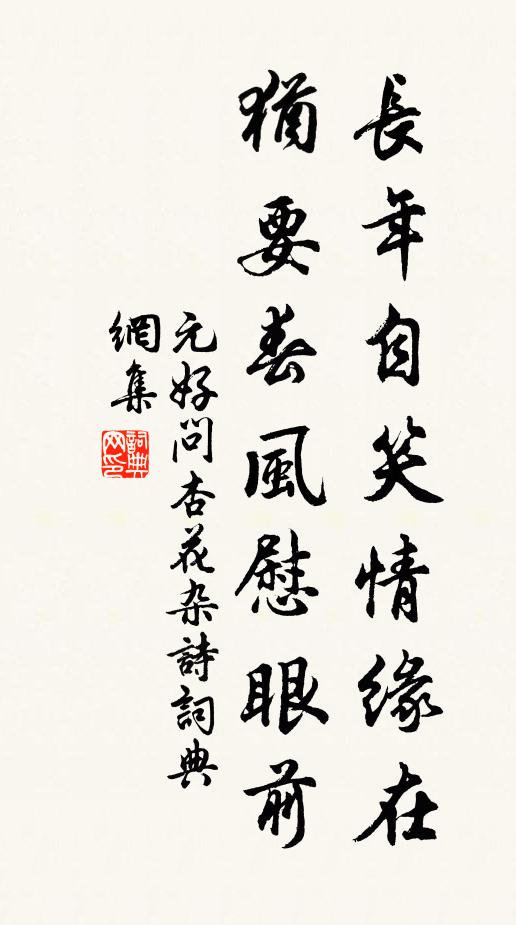 長年自笑情緣在
猶要春風慰眼前
元好問杏花杂詩詞典
網集
詞典網印